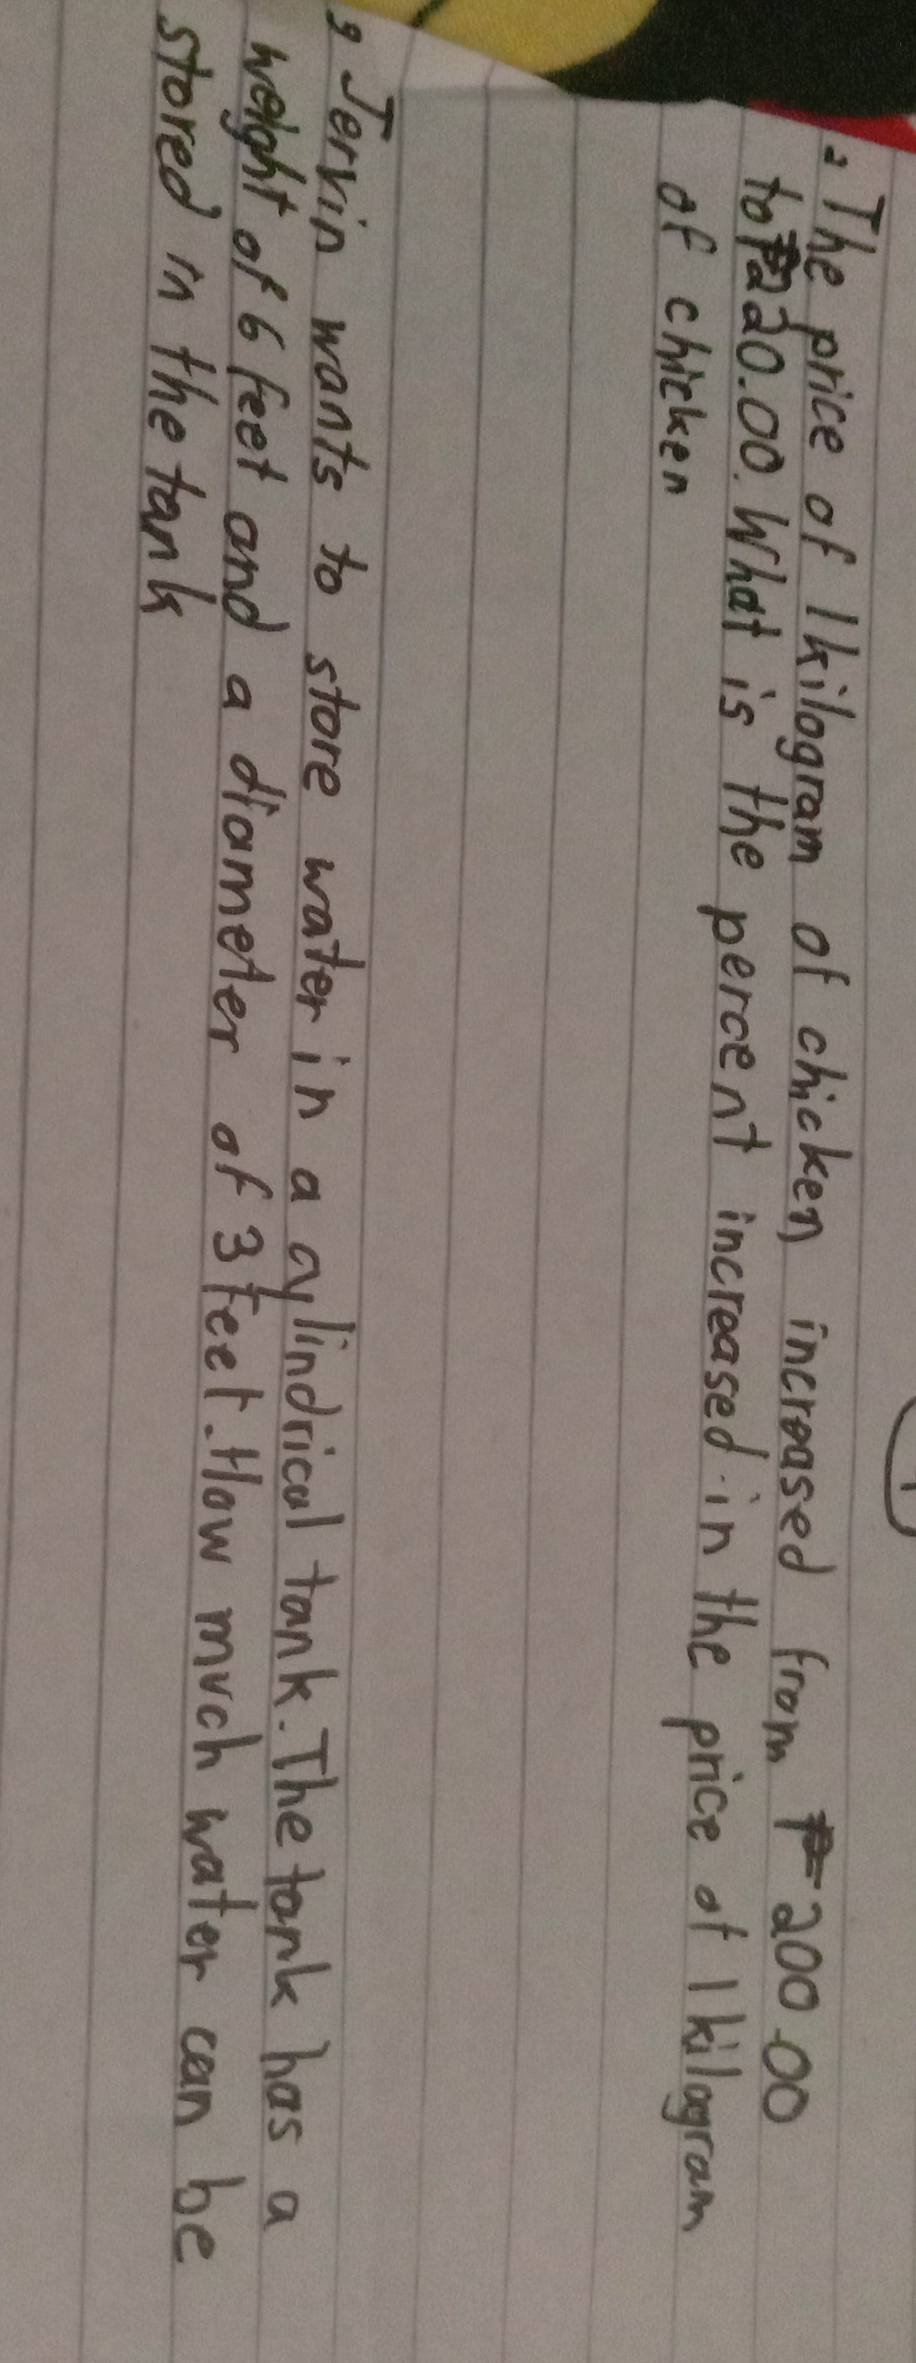 2 The price of 1 kilogram of chicken increased from ₱200.00
to ₱220.00. What is the percent increased in the price of 1 kilogram
of chicken
9 Jervin wants to store water in a cylindrical tank. The tank has a
weight of 6 feet and a diameter of 3 feet. How much water can be
stored in the tank